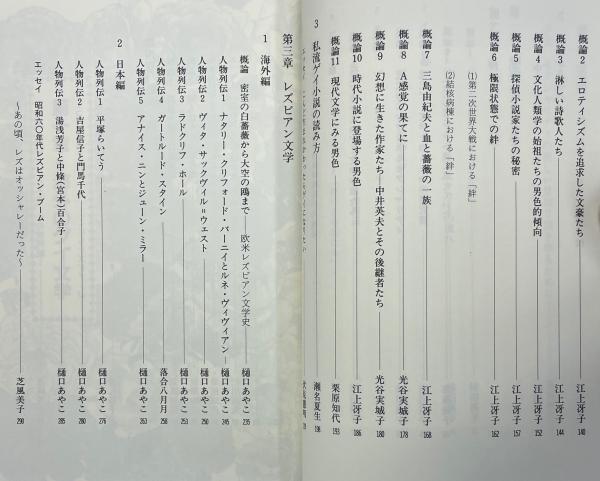 概論2 エロティシズムを追求した文豪たち 江上冴子 140
概論3 淋しい詩歌人たち 江上冴子 144
概論4 文化人類学の始祖たちの男色的傾向 江上冴子 152
概論5 探偵小説家たちの秘密 江上冴子 157
概論6 極限状態での絆 江上冴子 162
(1)第二次世界大戦における「絆」
(2)結核病棟における「絆」
概論7 三島由紀夫と血と薔薇の一族 江上冴子 168
概論8 A感覚の果てに 光谷実城子 178
概論9 幻想に生きた作家たち──中井英夫とその後継者たち 光谷実城子 180
概論10 時代小説に登場する男色 江上冴子 186
概論11 現代文学にみる男色 栗原知代 193
3 私流ゲイ小説の読み方 瀬名夏生
第三章 レズビアン文学
1 海外編
概論 密室の白薔薇から大空の鴎まで──欧米レズビアン文学史 樋口あやこ 235
人物列伝1 ナタリー・クリフォード・バーニイとルネ・ヴィヴィアン 樋口あやこ 245
人物列伝2 ヴィタ・サックヴィル=ウェスト 樋口あやこ 250
人物列伝3 ラドクリフ・ホール 樋口あやこ 253
人物列伝4 ガートルード・スタイン 落合八月月 258
人物列伝5 アナイス・ニンとジューン・ミラー 樋口あやこ 263
2 日本編
人物列伝1 平塚らいてう 樋口あやこ 276
人物列伝2 吉屋信子と門馬千代 樋口あやこ 280
人物列伝3 湯浅芳子と中條(宮本)百合子 樋口あやこ 285
エッセイ 昭和六〇年代レズビアン・ブーム
〜あの頃、レズはオッシャレーだった〜 芝風美子 290